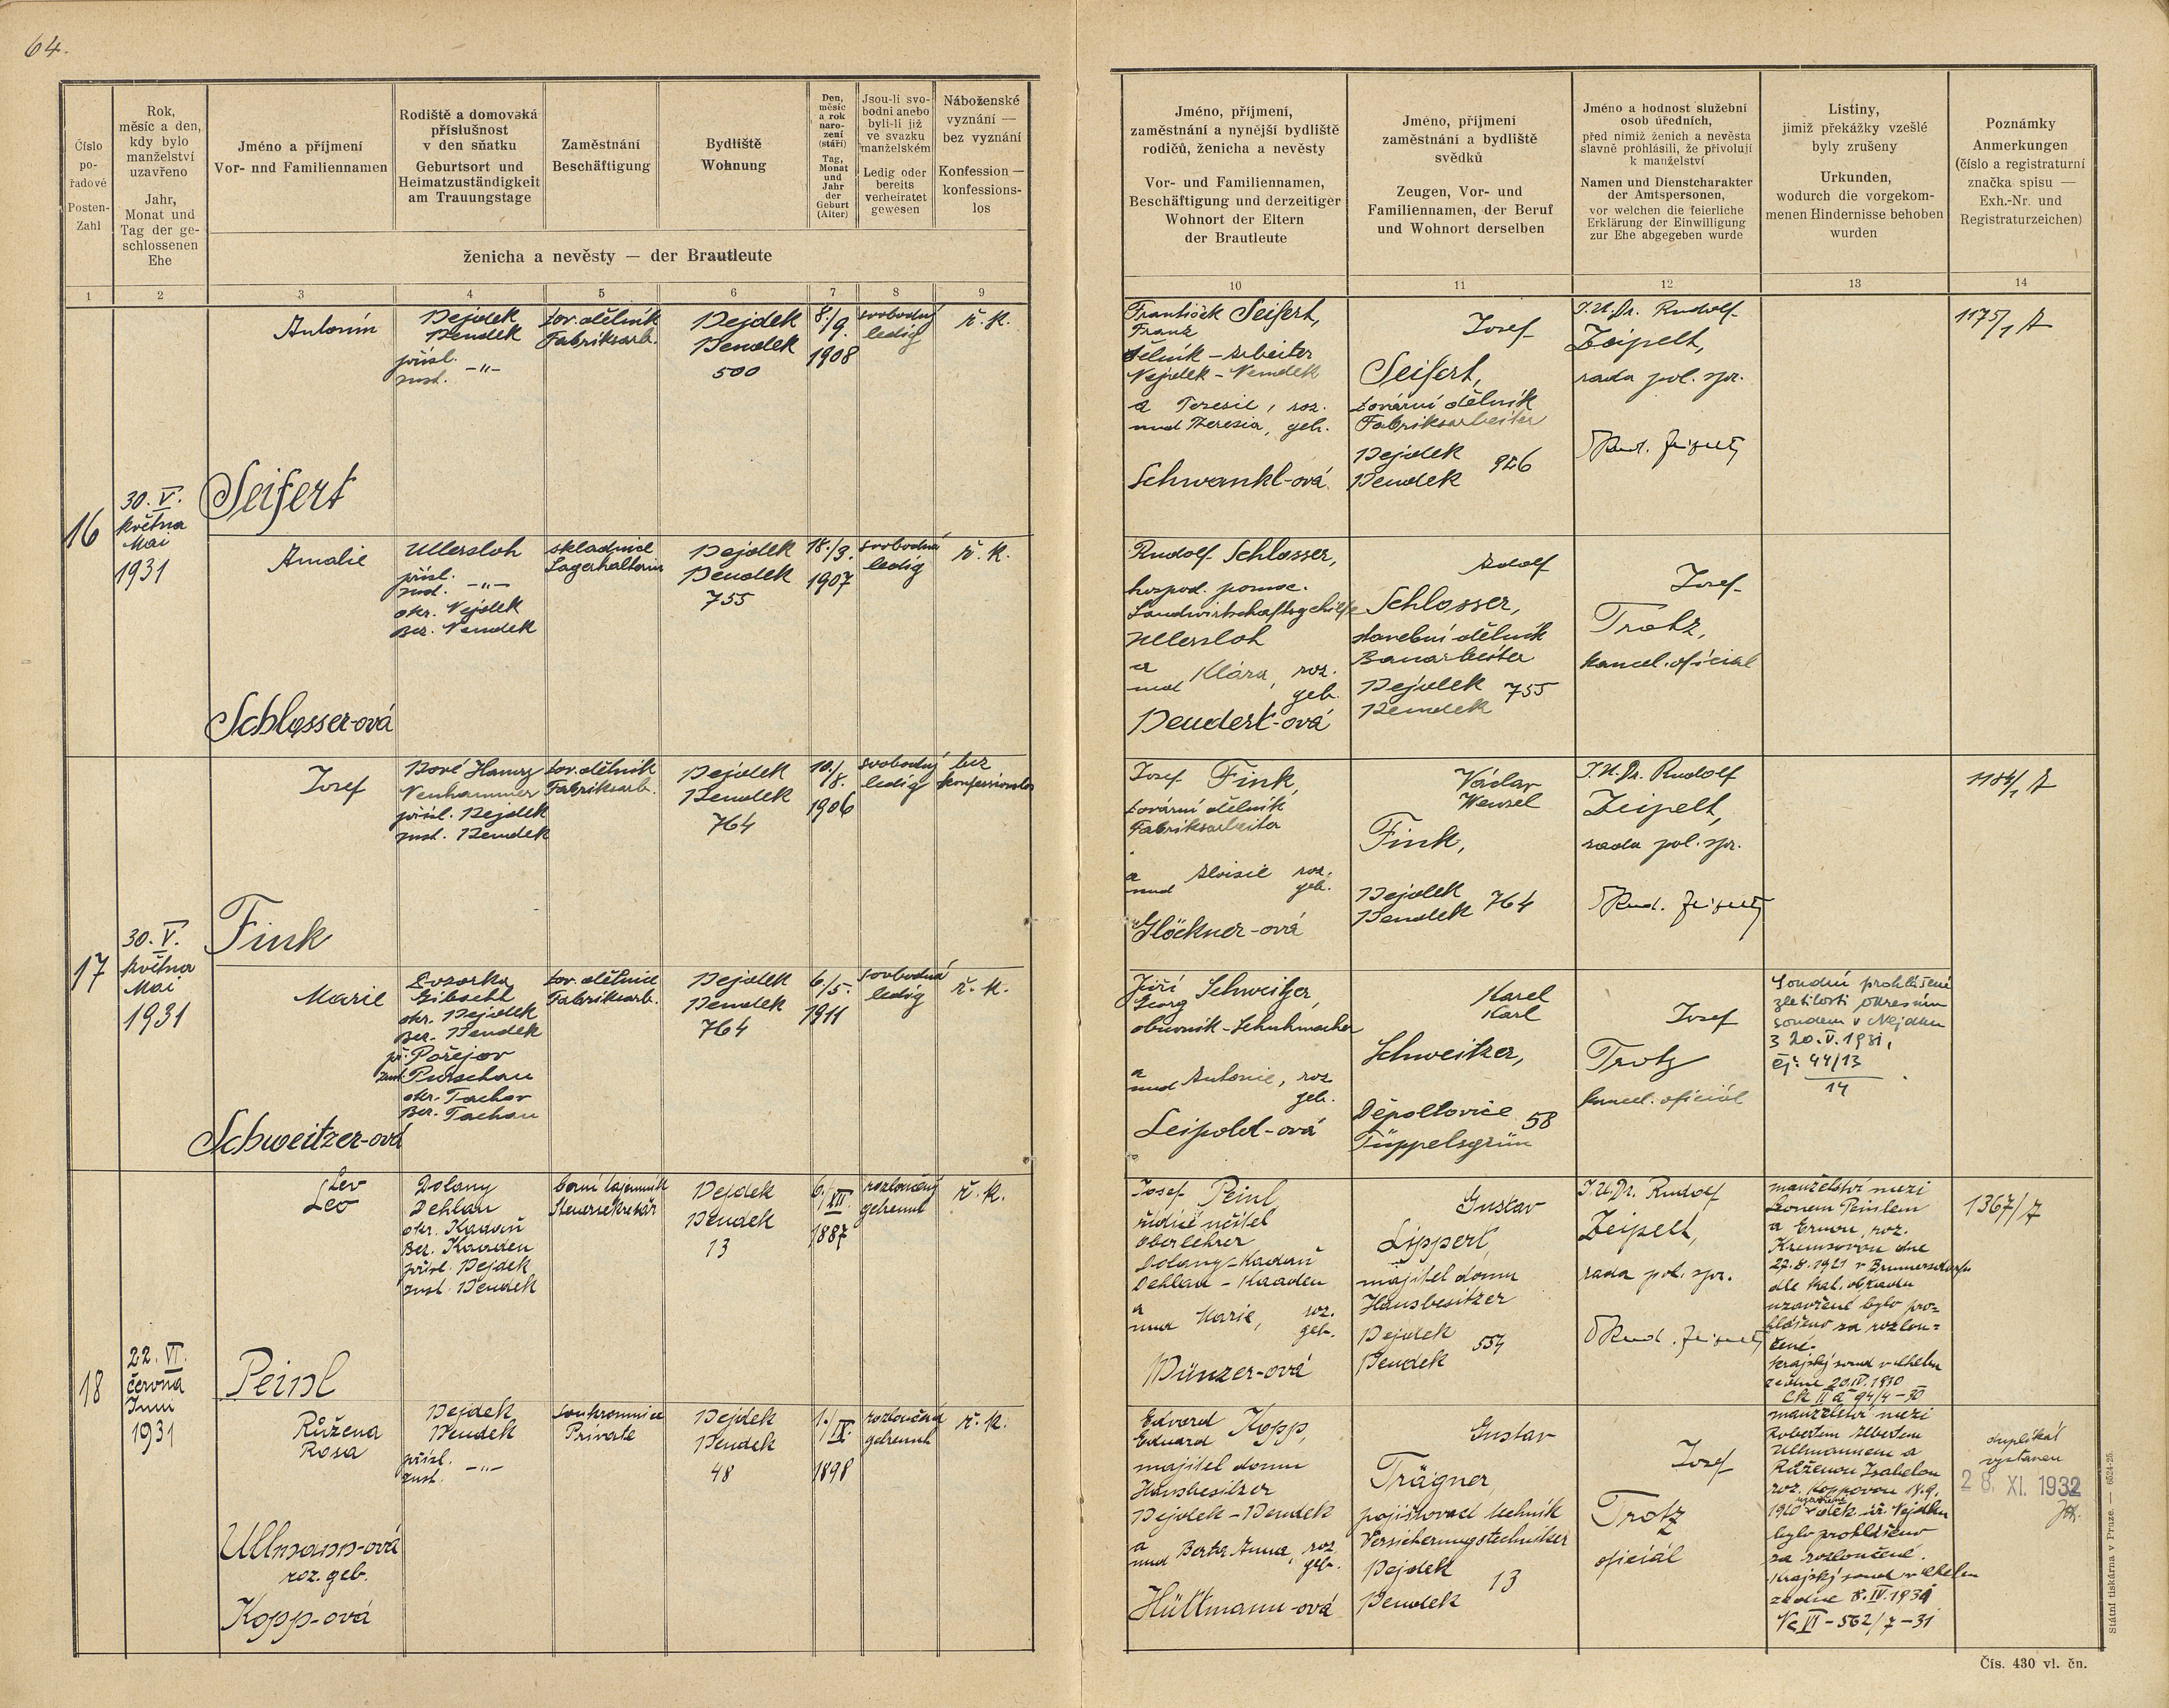 64.
Číslo
po-
řadové
Posten-
Zahl
Rok,
měsíc a den,
kdy bylo
manželství
uzavřeno
Jahr,
Monat und
Tag der ge-
schlossenen
Ehe
Jméno a příjmení
Vor- nnd Familiennamen
Rodiště a domovská
příslušnost
v den sňatku
Geburtsort und
Heimatzuständigkeit
am Trauungstage
Zaměstnání
Beschäftigung
Bydliště
Wohnung
Den,
měsíc
a rok
naro-
zení
(stáří)
Tag,
Monat
und
Jahr
der
Geburt
(Alter)
Jsou-li svo-
bodni anebo
byli-li již
ve svazku
manželském
Ledig oder
bereits
verheiratet
gewesen
Náboženské
vyznání —
bez vyznání
Konfession —
konfessions-
los
ženicha a nevěsty — der Brautleute
1 2 3 4 5 6 7 8 9
Jméno, příjmení,
zaměstnání a nynější bydliště
rodičů, ženicha a nevěsty
Vor- und Familiennamen,
Beschäftigung und derzeitiger
Wohnort der Eltern
der Brautleute
Jméno, příjmení
zaměstnání a bydliště
svědků
Zeugen, Vor- und
Familiennamen, der Beruf
und Wohnort derselben
Jméno a hodnost služební
osob úředních,
před nimiž ženich a nevěsta
slavně prohlásili, že přivolují
k manželství
Namen und Dienstcharakter
der Amtspersonen,
vor welchen die feierliche
Erklärung der Einwilligung
zur Ehe abgegeben wurde
Listiny,
jimiž překážky vzešlé
byly zrušeny
Urkunden,
wodurch die vorgekom-
menen Hindernisse behoben
wurden
Poznámky
Anmerkungen
(číslo a registraturní
značka spisu —
Exh.-Nr. und
Registraturzeichen)
10 11 12 13 14
16
30. V.
května
Mai
1931
Antonín
Seifert
Nejdek
Neudek
přísl.
zust. -"-
tov. dělník
Fabriksarb.
Nejdek
Neudek
500
8./9.
1908
svobodný
ledig
ř. k.
František Seifert,
Franz
dělník - Arbeiter
Nejdek - Neudek
a Terezie, roz.
und Theresia, geb.
Schwankl-ová
Josef
Seifert,
tovární dělník
Fabriksarbeiter
Nejdek
Neudek 926
J.U.Dr. Rudolf
Zeipelt,
rada pol. spr.
Rud. Zeipelt
1175/1
Amalie
Schlosser-ová
Ullersloh
přísl.
zust. -"-
okr. Nejdek
Bez. Neudek
skladnice
Lagerhalterin
Nejdek
Neudek
755
18./3.
1907
svobodná
ledig
ř. k.
Rudolf Schlosser,
hospod. pomoc.
Landwirtschaftsgehilfe
Ullersloh
a
und Klára, roz.
geb.
Neudert-ová
Adolf
Schlosser,
stavební dělník
Bauarbeiter
Nejdek
Neudek 755
Josef
Trotz,
kancel. oficial
17
30. V.
května
Mai
1931
Josef
Fink
Nové Hamry
Neuhammer
přísl. Nejdek
zust. Neudek
tov. dělník
Fabriksarb.
Nejdek
Neudek
764
10./8.
1906
svobodný
ledig
bez
konfessionslos
Josef Fink,
tovární dělník
Fabriksarbeiter
a
und Aloisie roz.
geb.
Glöckner-ová
Václav
Wenzel
Fink,
Nejdek
Neudek 764
J.U.Dr. Rudolf
Zeipelt,
rada pol. spr.
Rud. Zeipelt
1184/1
Marie
Schweitzer-ová
Gibacht
okr. Nejdek
Bez. Neudek
př. Pořejov
zust. Purschau
okr. Tachov
Bez. Tachau
tov. dělnice
Fabriksarb.
Nejdek
Neudek
764
6./5.
1911
svobodná
ledig
ř. k.
Jiří
Georg Schweitzer,
obuvník - Schuhmacher
a
und Antonie, roz.
geb.
Leipold-ová
Karel
Karl
Schweitzer,
Děpoltovice
Tüppelsgrün 58
Josef
Trotz
kancel. oficiál
Soudní prohlášení
zletilosti okresním
soudem v Nejdku
z 20. V. 1931,
čj: 44/13
14
18
22. VI.
června
Juni
1931
Lev
Leo
Peinl
Dolany
Dehlau
okr. Kadaň
Bez. Kaaden
přísl. Nejdek
zust. Neudek
berní tajemník
Steuersekretär
Nejdek
Neudek
13
6./XII.
1887
rozloučený
getrennt
ř. k.
Josef Peinl
řídící učitel
Oberlehrer
Dolany - Kadaň
Dehlau - Kaaden
a
und Marie, roz.
geb.
Münzer-ová
Gustav
Lippert,
majitel domu
Hausbesitzer
Nejdek
Neudek 554
J.U.Dr. Rudolf
Zeipelt,
rada pol. spr.
Rud. Zeipelt
manželství mezi
Leonem Peinlem
a Ernou, roz.
dne
27.8.1921 v Brunnersdorfu
dle kat. obřadu
uzavřené bylo pro-
hlášeno za rozlou-
čené.
Krajský soud v Chebu
ze dne 20.IV.1930
Ck II a 94/4-30
1367/7
Růžena
Rosa
Ullmann-ová
roz. geb.
Kopp-ová
Nejdek
Neudek
přísl.
zust. -"-
soukromnice
Private
Nejdek
Neudek
48
1./IX.
1898
rozloučená
getrennt
ř. k.
Edvard
Eduard Kopp,
majitel domu
Hausbesitzer
Nejdek - Neudek
a
und Berta Anna, roz.
geb.
Hüttmann-ová
Gustav
Trägner
pojišťovací technik
Versicherungstechniker
Nejdek
Neudek 13
Josef
Trotz
oficiál
manželství mezi
Robertem Albertem
Ullmannem a
Růženou Isabelou
roz. Koppovou 18.9.
1920 uzavřené v děk. úř. Nejdku
bylo prohlášeno
za rozloučené.
Krajský soud v Chebu
ze dne 8.IV.1931
Nc VI - 562/7 - 31
duplikát
vystaven
28. XI. 1932
Státní tiskárna v Praze. — 6524-25.
Čís. 430 vl. čn.